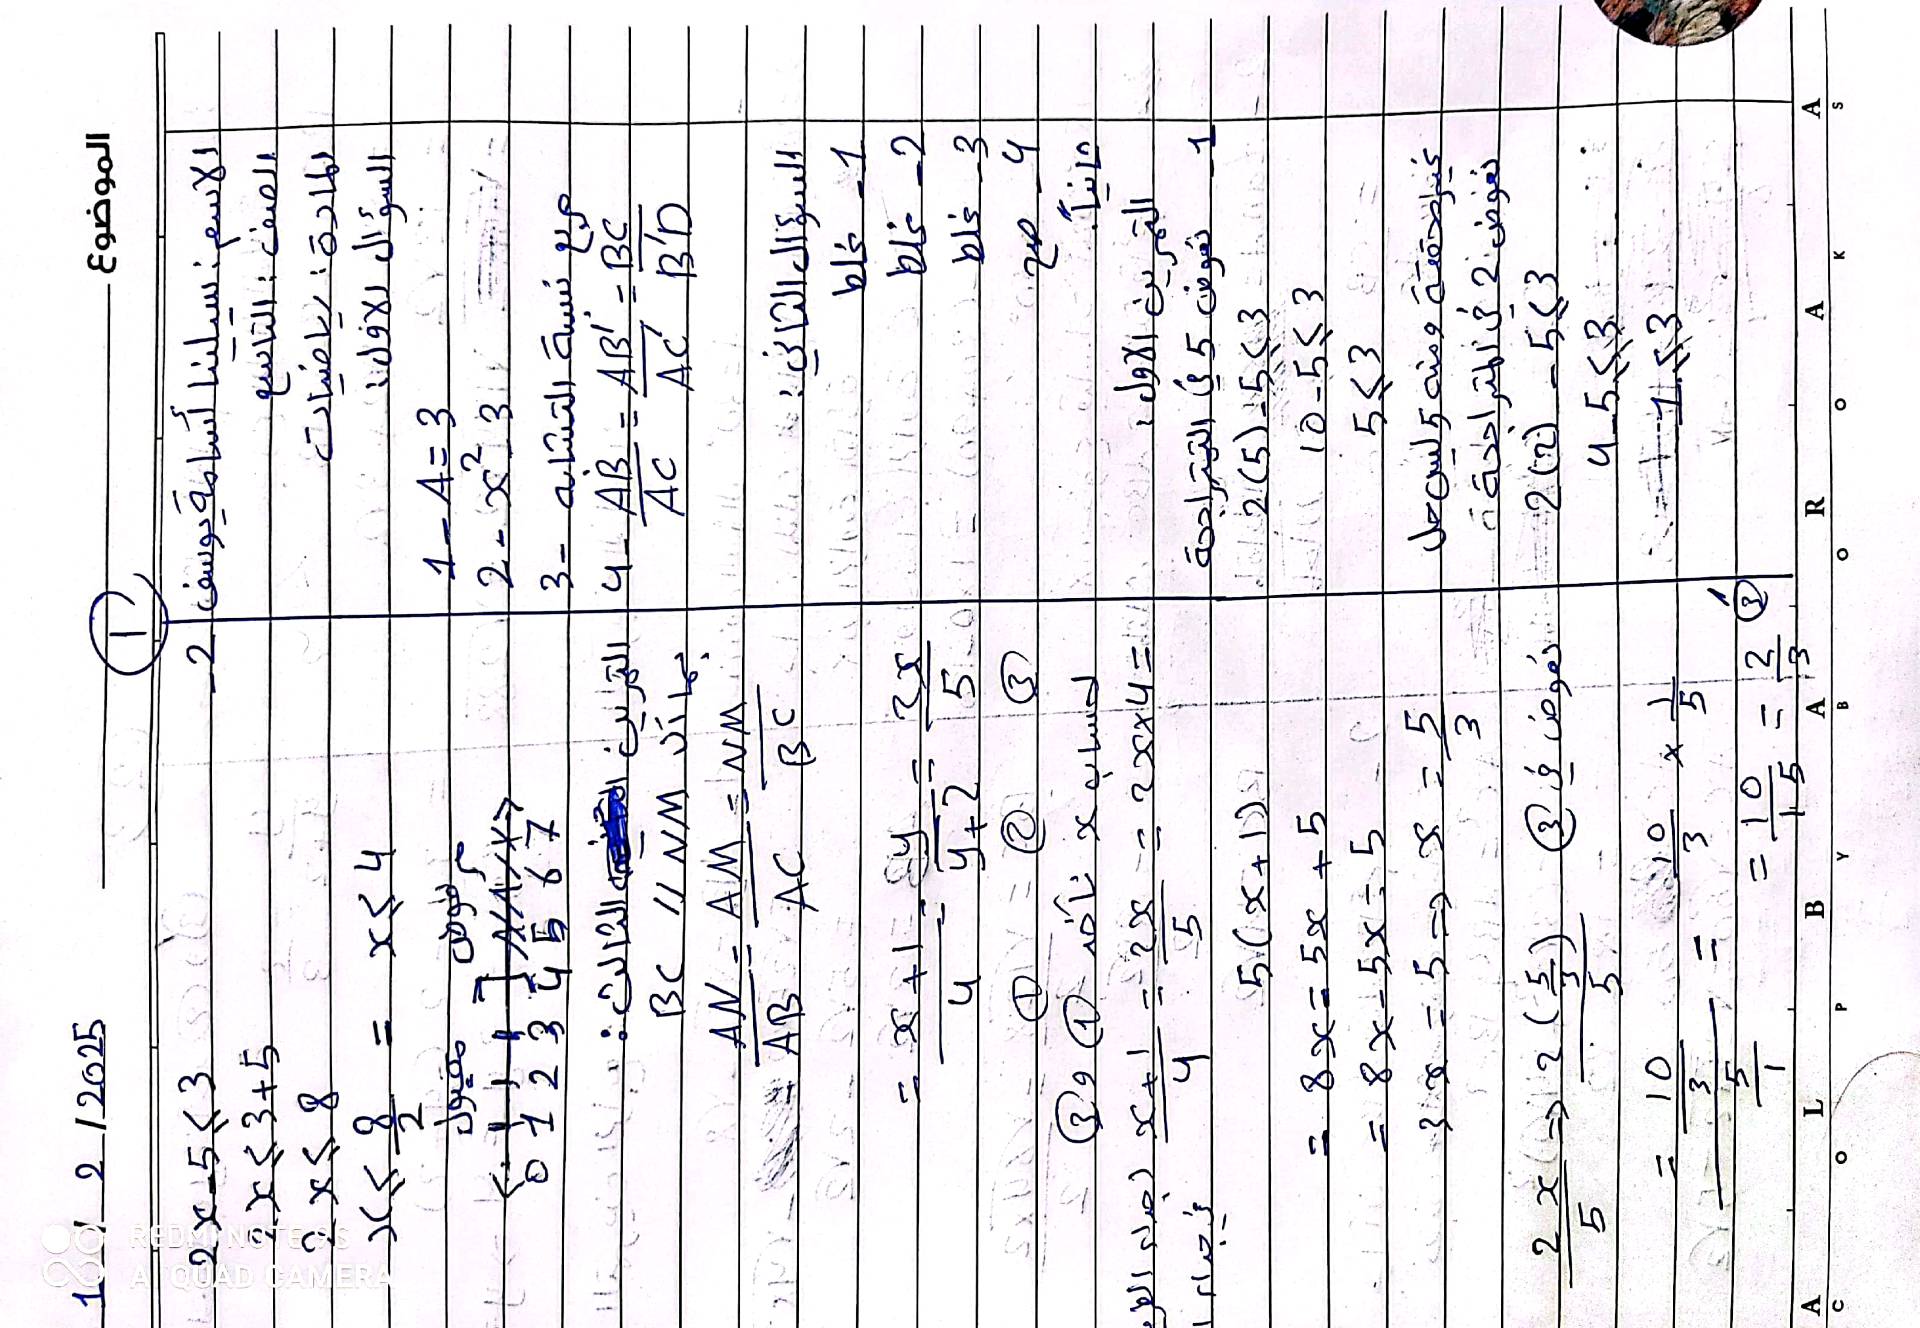 الموضوع
1 / 2 / 2025
1
الاسم: سيلينا أسامة يوسف
الصف: التاسع
المادة: رياضيات
السؤال الاول:
1- A = 3
2- x² - 3
3- مربع نسبة التشابه
4- AB/AC = AB'/AC' = BC/B'D
السؤال الثاني:
1- غلط
2- غلط
3- غلط
4- صح
ثانياً:
التمرين الاول:
1- نعوض 5 في المتراجحة
2(5) - 5 ⩽ 3
10 - 5 ⩽ 3
5 ⩽ 3
غير محققة ومنه 5 ليس حل
نعوض 2 في المتراجحة
2(2) - 5 ⩽ 3
4 - 5 ⩽ 3
-1 ⩽ 3
2-
2x - 5 ⩽ 3
2x ⩽ 3 + 5
2x ⩽ 8
x ⩽ 8/2 = x ⩽ 4
مقبول مرفوض
0 1 2 3 4 5 6 7
التمرين الثالث:
بما أن BC // NM
AN/AB = AM/AC = NM/BC
= x+1/4 = y/y+2 = 2x/5
① ② ③
لحساب x نأخذ ① و ③
x+1/4 = 2x/5 = 2x×4 =
5(x+1)
= 8x = 5x + 5
= 8x - 5x = 5
3x = 5 => x = 5/3
نعوض في ③
2x/5 => 2(5/3)/5
= 10/3 / 5/1 = 10/3 × 1/5
= 10/15 = 2/3 ③
A L P B A R O A K A
C O L Y B O O K S